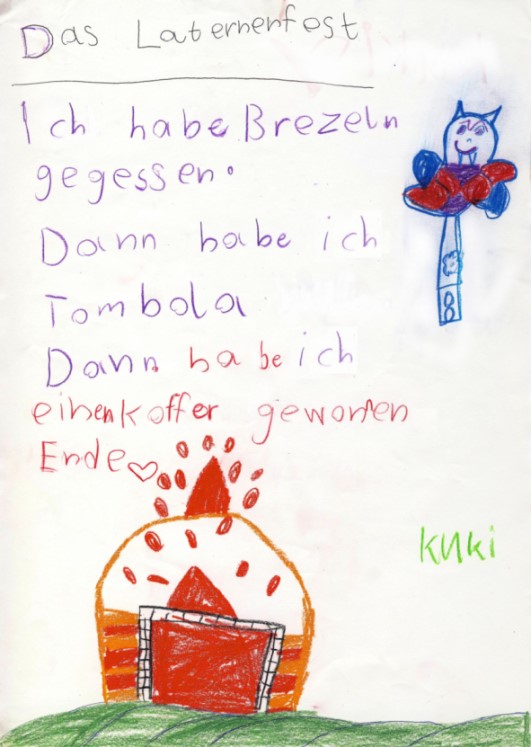 Das Laternenfest
Ich habe Brezeln
gegessen.
Dann habe ich
Tombola
Dann habe ich
einen koffer gewonnen
Ende
KUKi